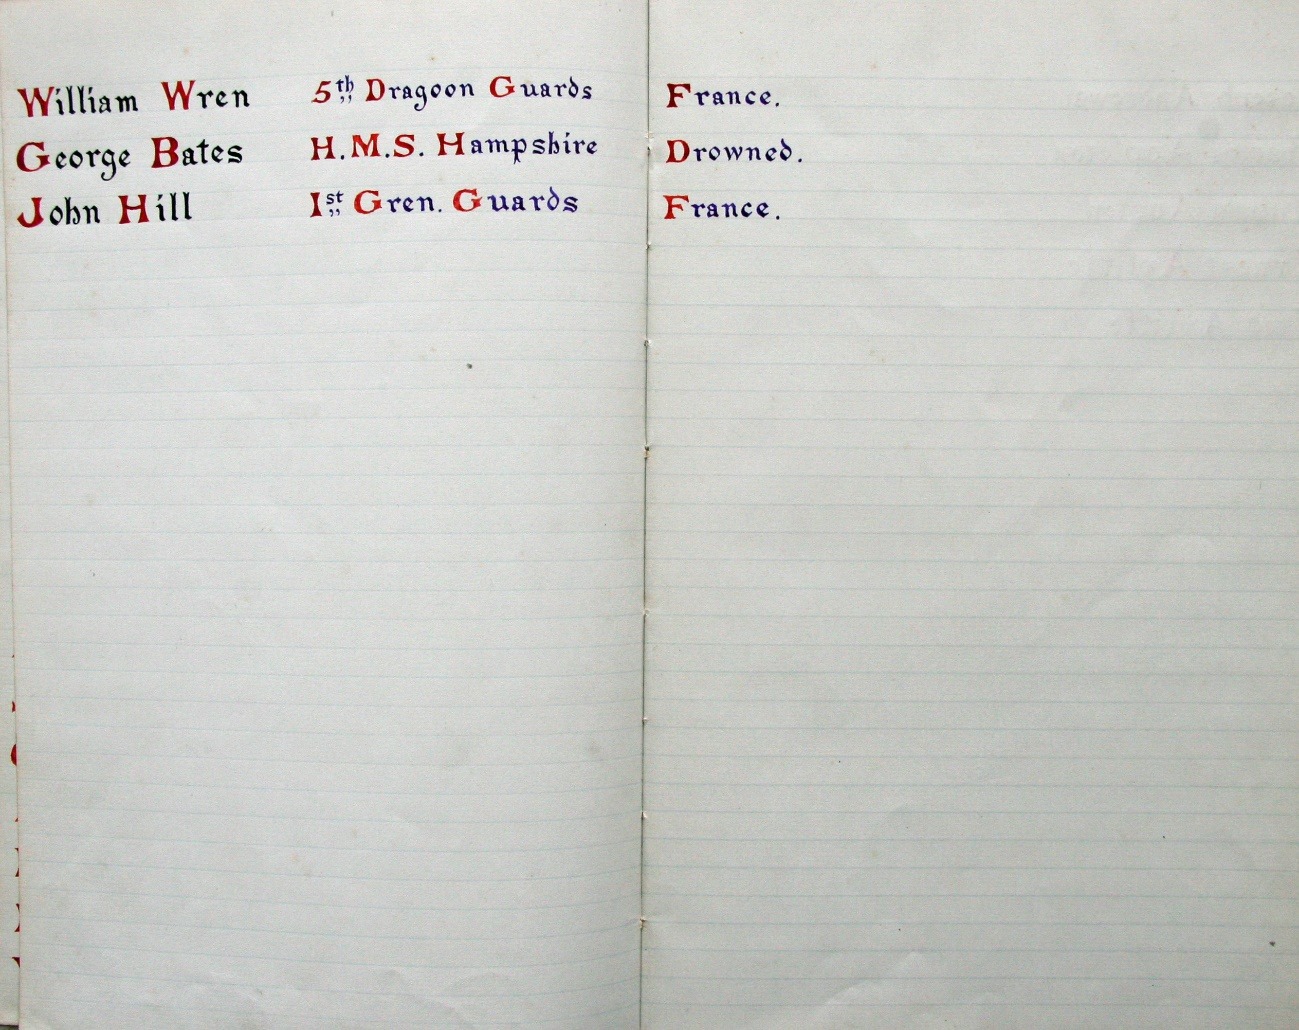 William Wren 5th Dragoon Guards France.
George Bates H.M.S. Hampshire Drowned.
John Hill 1st Gren. Guards France.